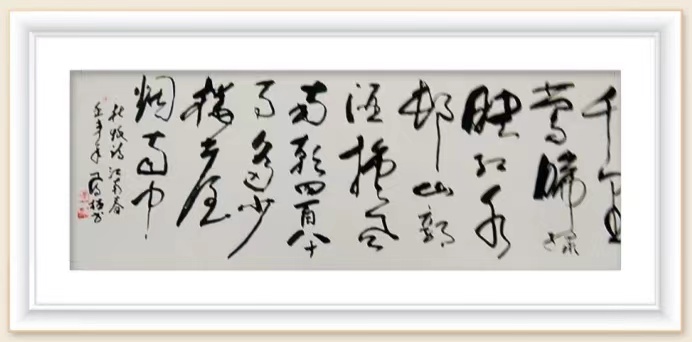 千里
莺啼绿
映红水
邨山郭
酒旗风
南朝四百八十
寺多少
楼台
烟雨中
杜牧诗江南春
年 书